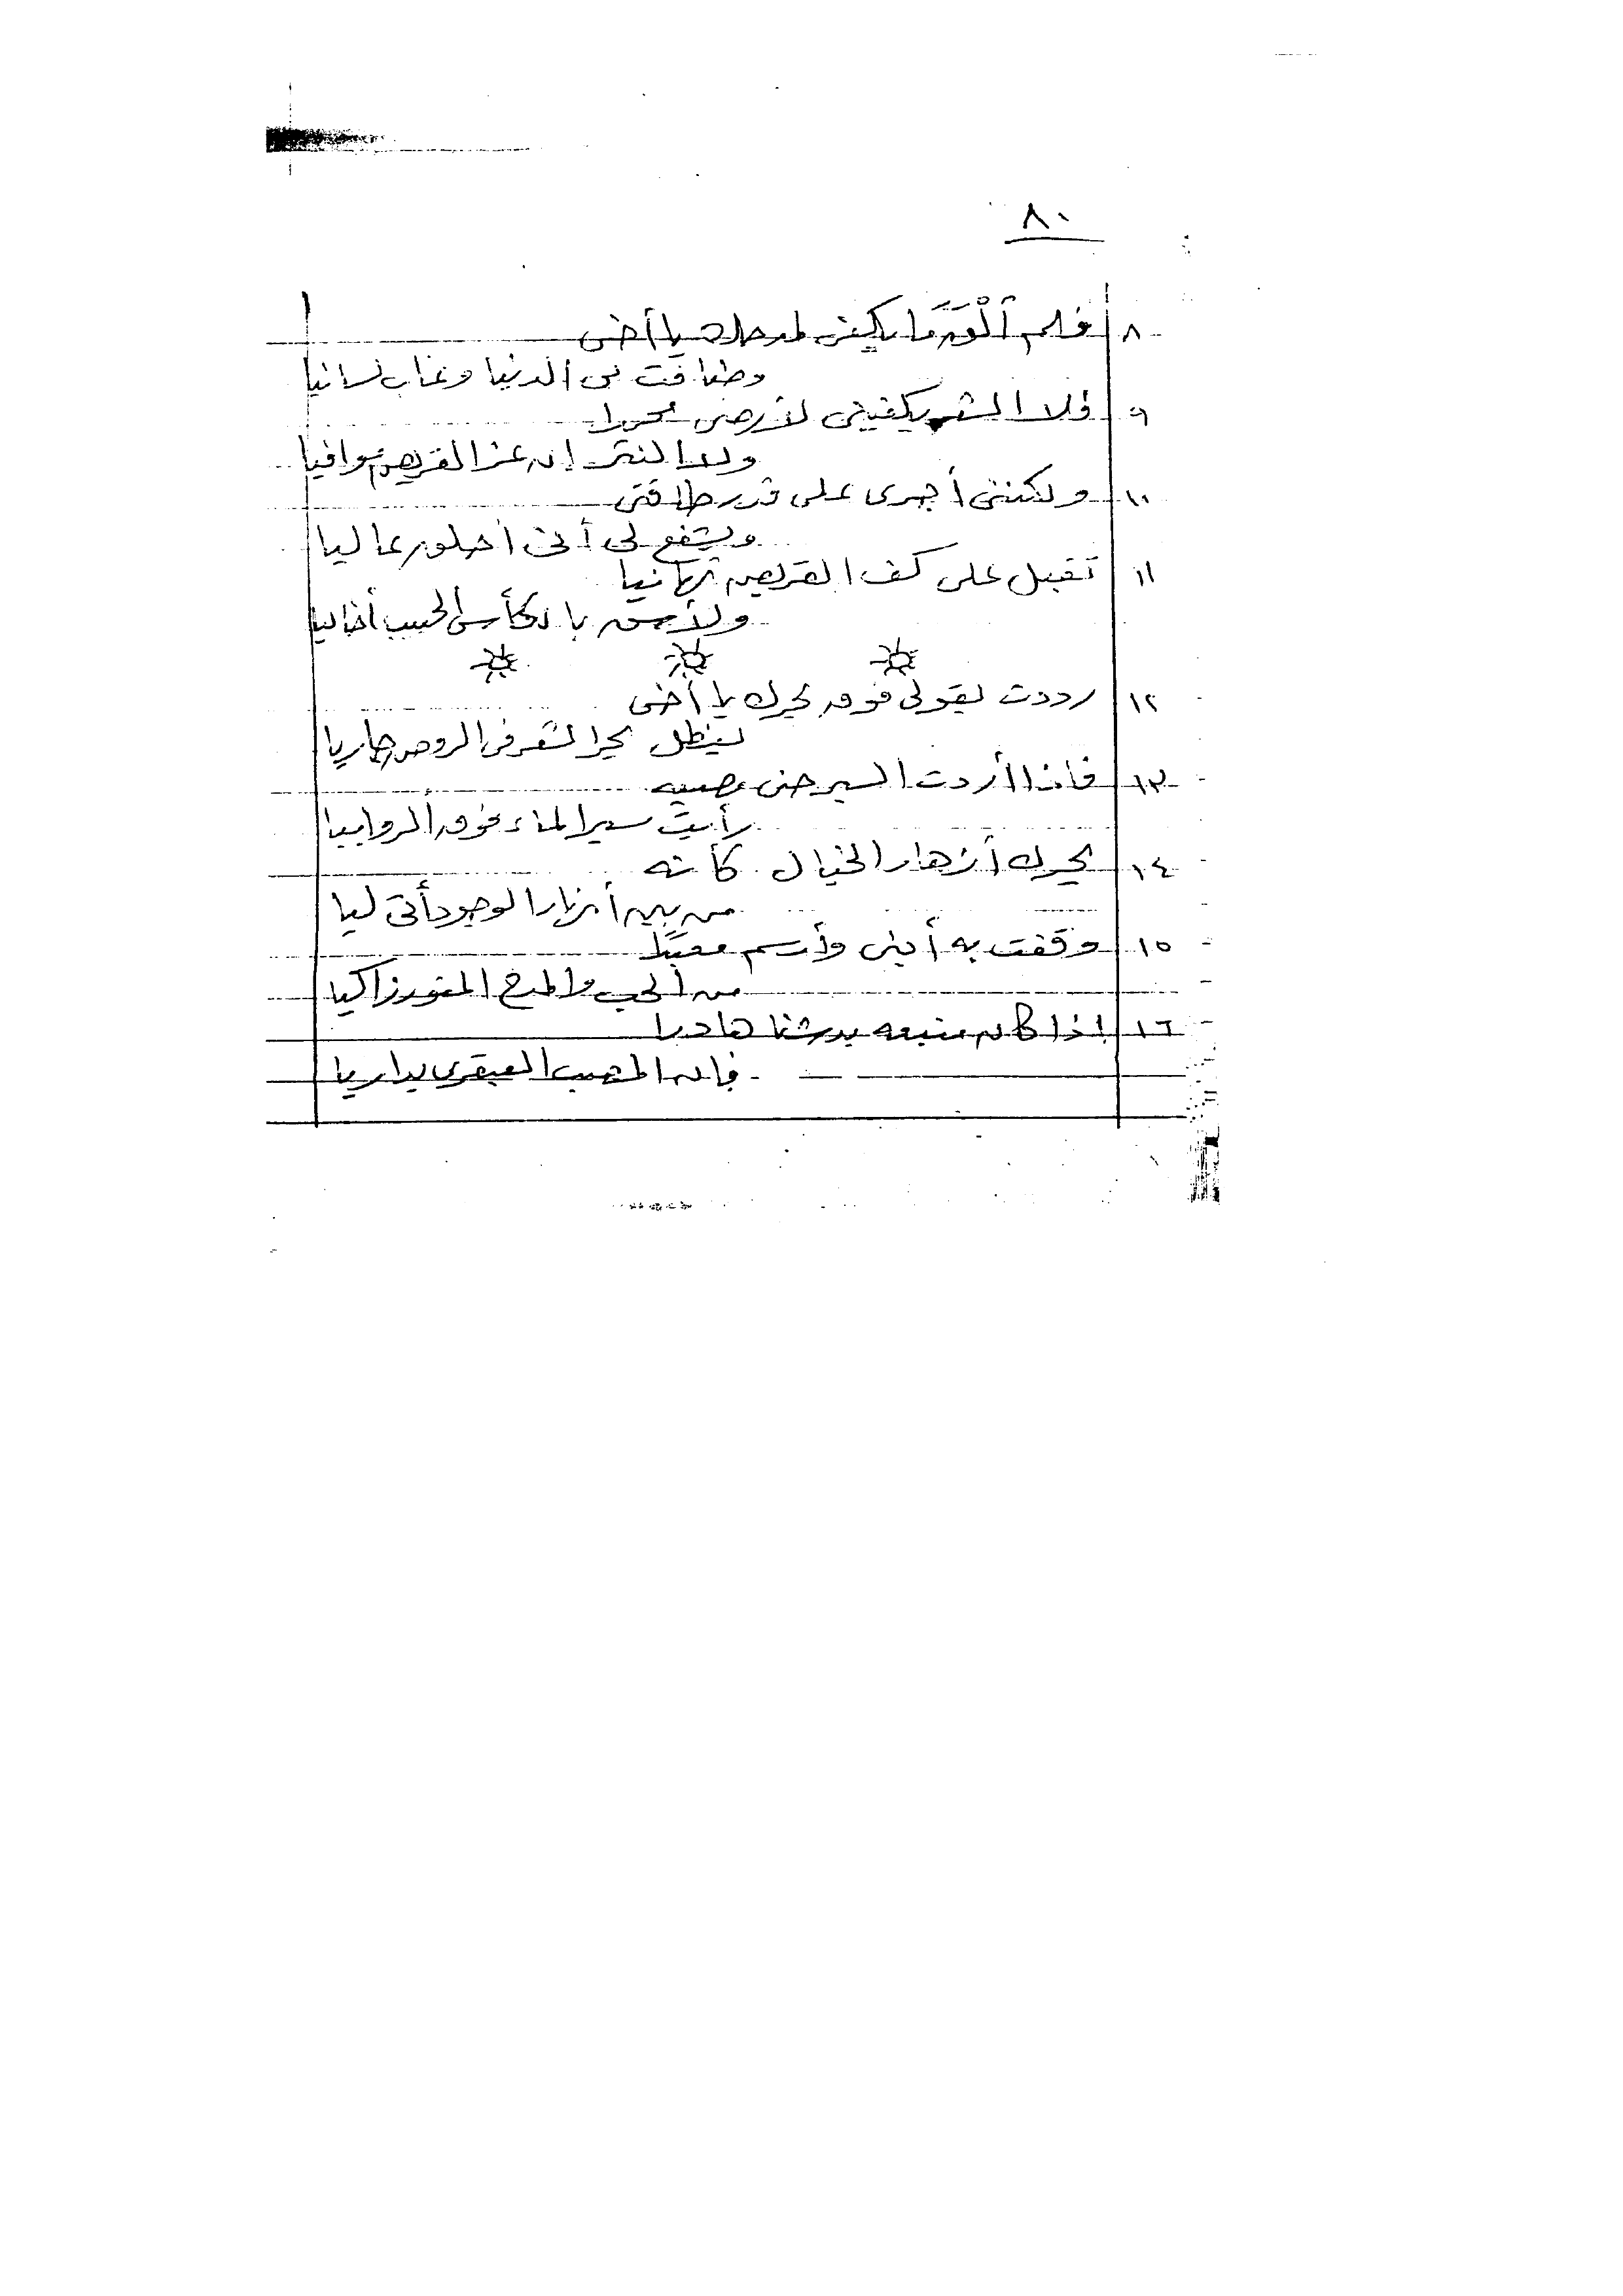 ٨٠
٨ فلم ألق ما يكفى لمدحك يا أخى
وضاقت بى الدنيا وغاب لسانيا
٩ فلا الشعر يكفينى لأرضى
ولا النثر إن عز القريض موافيا
١٠ ولكننى أجرى على قدر طاقتى
ويشفع لى أنى أحاور عاليا
١١ تقبل على كف القريض تهانيا
ولأمسى بالكأس الحبيب أخاليا
١٢ رددت بقولى فوق بحرك يا أخى
ليظل بحر الشعر فى الروض جاريا
١٣ فإذا أردت السير حتى مصبه
رأيت سير الماء فوق الروابيا
١٤ بحرك أزهار الخيال كأنه
من بين أنهار الوجود أتى ليا
١٥ وقفت به أبنى وأرسم معبدا
من الحب والمدح زاكيا
١٦ إذا كان منبعه برشنا هادرا
فإن المصب العبقرى بداريا